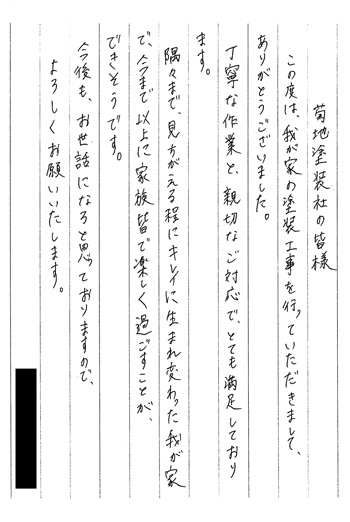 菊地塗装社の皆様
この度は、我が家の塗装工事を行っていただきまして、
ありがとうございました。
丁寧な作業と、親切なご対応で、とても満足しており
ます。
隅々まで、見ちがえる程にキレイに生まれ変わった我が家
で、今まで以上に家族皆で楽しく過ごすことが、
できそうです。
今後も、お世話になろと思っておりますので、
よろしくお願いいたします。